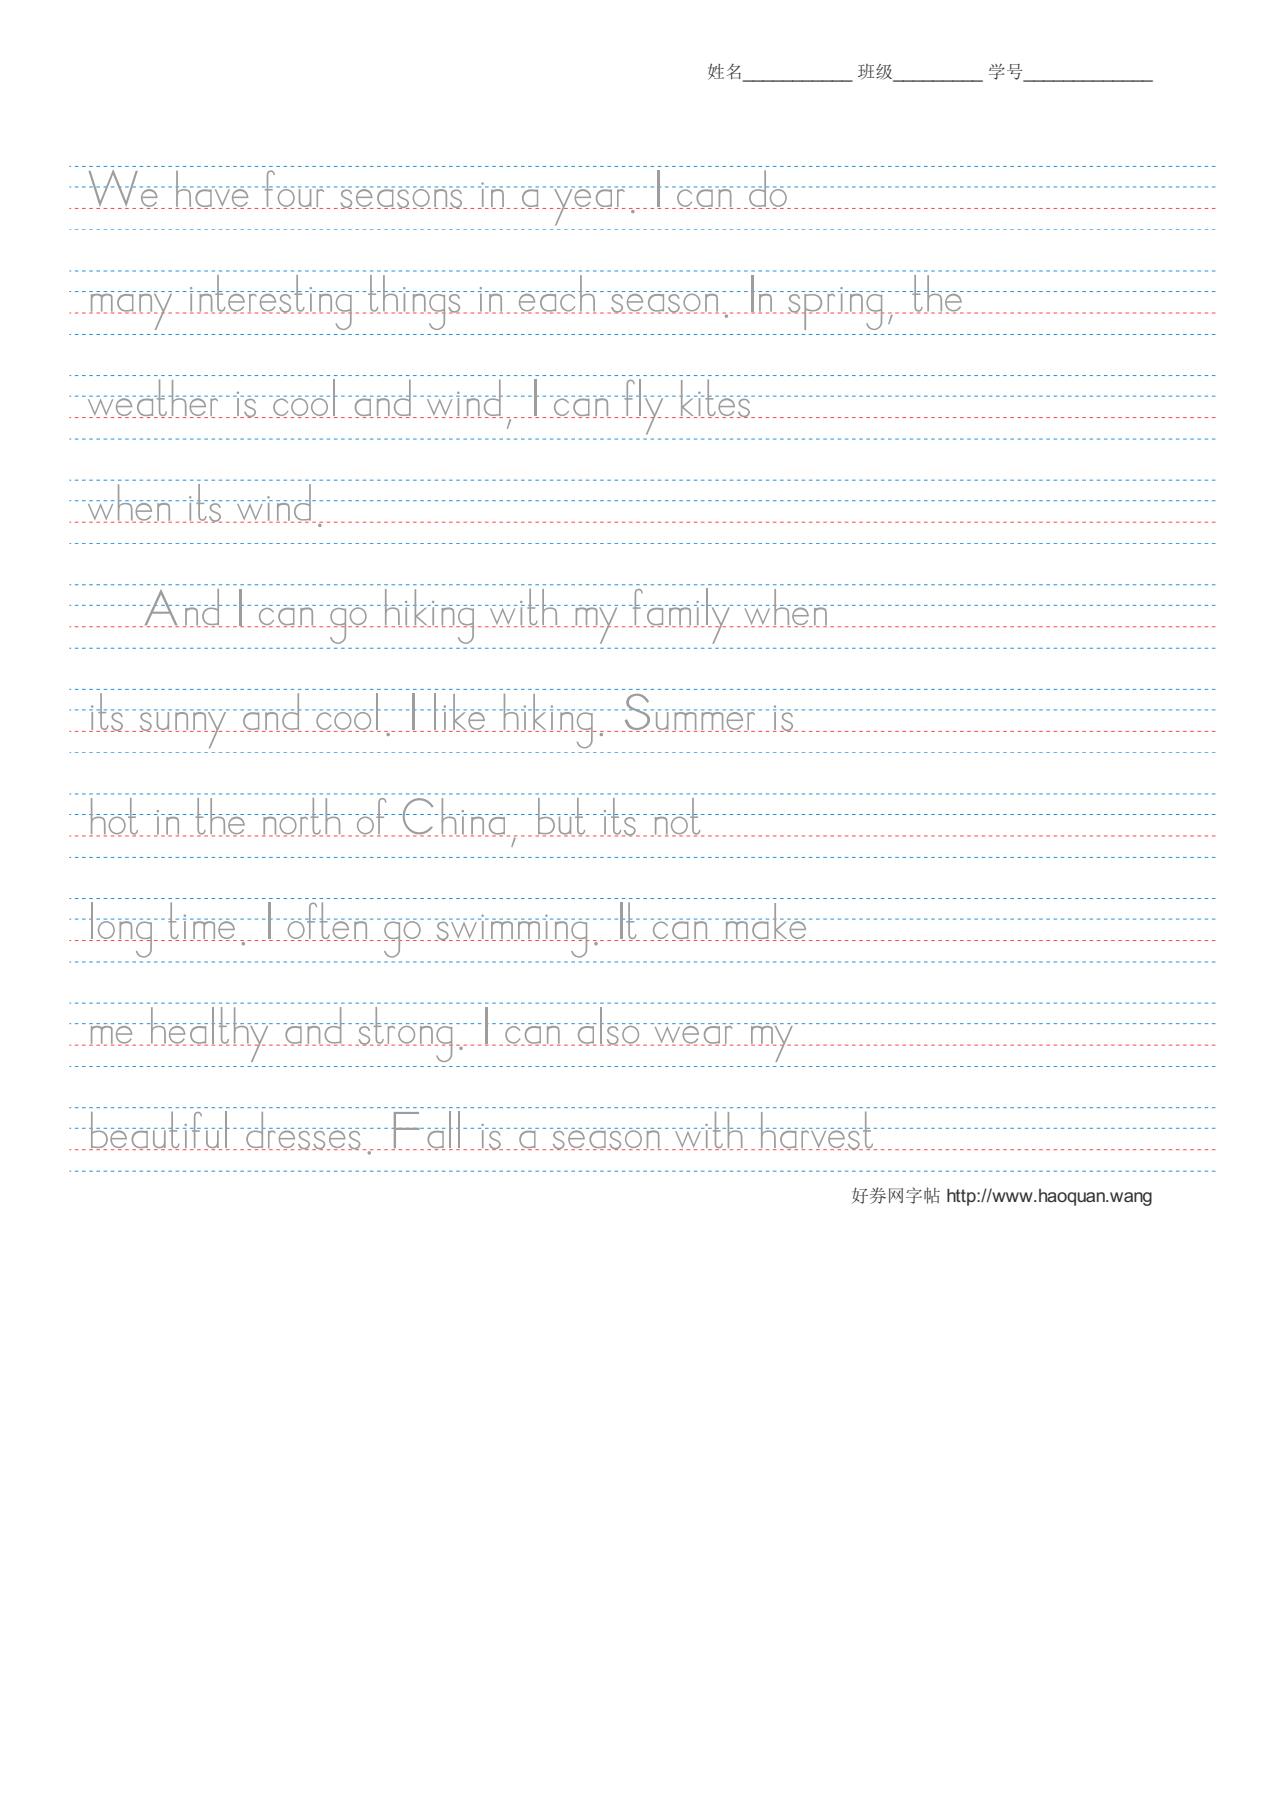 姓名___________ 班级_________ 学号_____________
We have four seasons in a year. I can do
many interesting things in each season. In spring, the
weather is cool and wind, I can fly kites
when its wind.
And I can go hiking with my family when
its sunny and cool. I like hiking. Summer is
hot in the north of China, but its not
long time. I often go swimming. It can make
me healthy and strong. I can also wear my
beautiful dresses. Fall is a season with harvest
好券网字帖 http://www.haoquan.wang